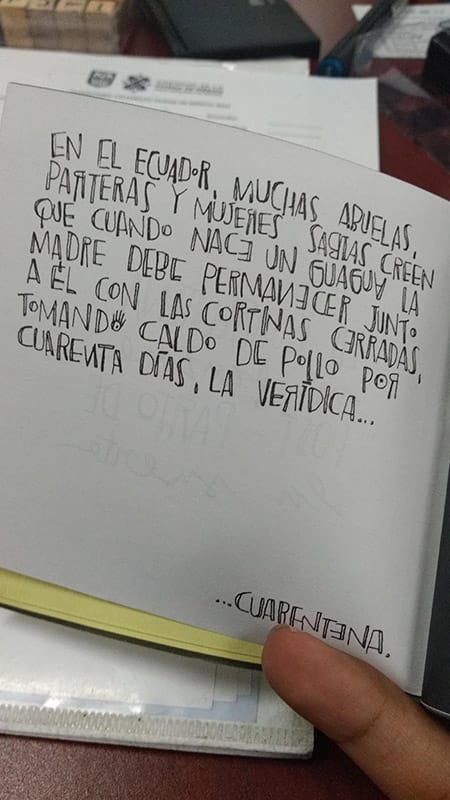 EN EL ECUADOR, MUCHAS ABUELAS,
PARTERAS Y MUJERES SABIAS CREEN
QUE CUANDO NACE UN GUAGUA LA
MADRE DEBE PERMANECER JUNTO
A ÉL CON LAS CORTINAS CERRADAS,
TOMANDO CALDO DE POLLO POR
CUARENTA DÍAS, LA VERÍDICA...
...CUARENTENA.